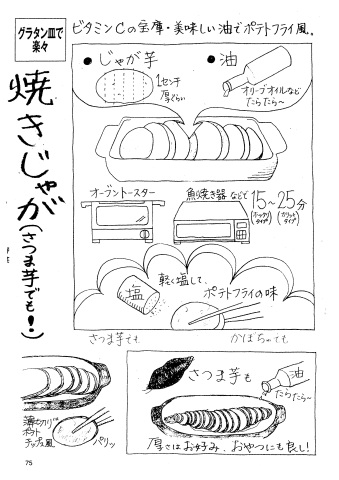 グラタン皿で
楽々
焼きじゃが(さつま芋でも!)
ビタミンCの宝庫・美味しい油でポテトフライ風。
●じゃが芋
1センチ
厚くらい
●油
オリーブオイルなど
たらたら〜
オーブントースター
魚焼き器などで
15〜25分
(ホックリタイプ)
(カリッとタイプ)
軽く塩して、
塩
ポテトフライの味
さつま芋でも
かぼちゃでも
薄切り
ポテト
チップス風
パリッ
さつま芋も
油
たらたら〜
厚さはお好み、おやつにも良し!
75